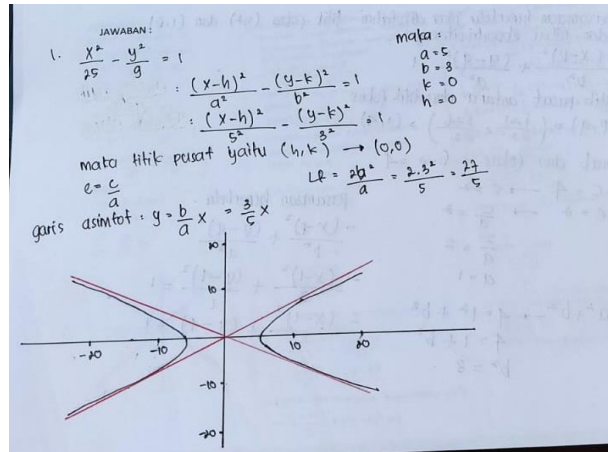 JAWABAN :
1. x²/25 - y²/9 = 1
: (x-h)²/a² - (y-k)²/b² = 1
: (x-h)²/5² - (y-k)²/3²
maka :
a = 5
b = 3
k = 0
h = 0
maka titik pusat yaitu (h, k) → (0,0)
e = c/a
LR = 2b²/a = 2.3²/5 = 27/5
garis asimtot : y = b/a x = 3/5 x
20
10
-20 -10 10 20
-10
-20